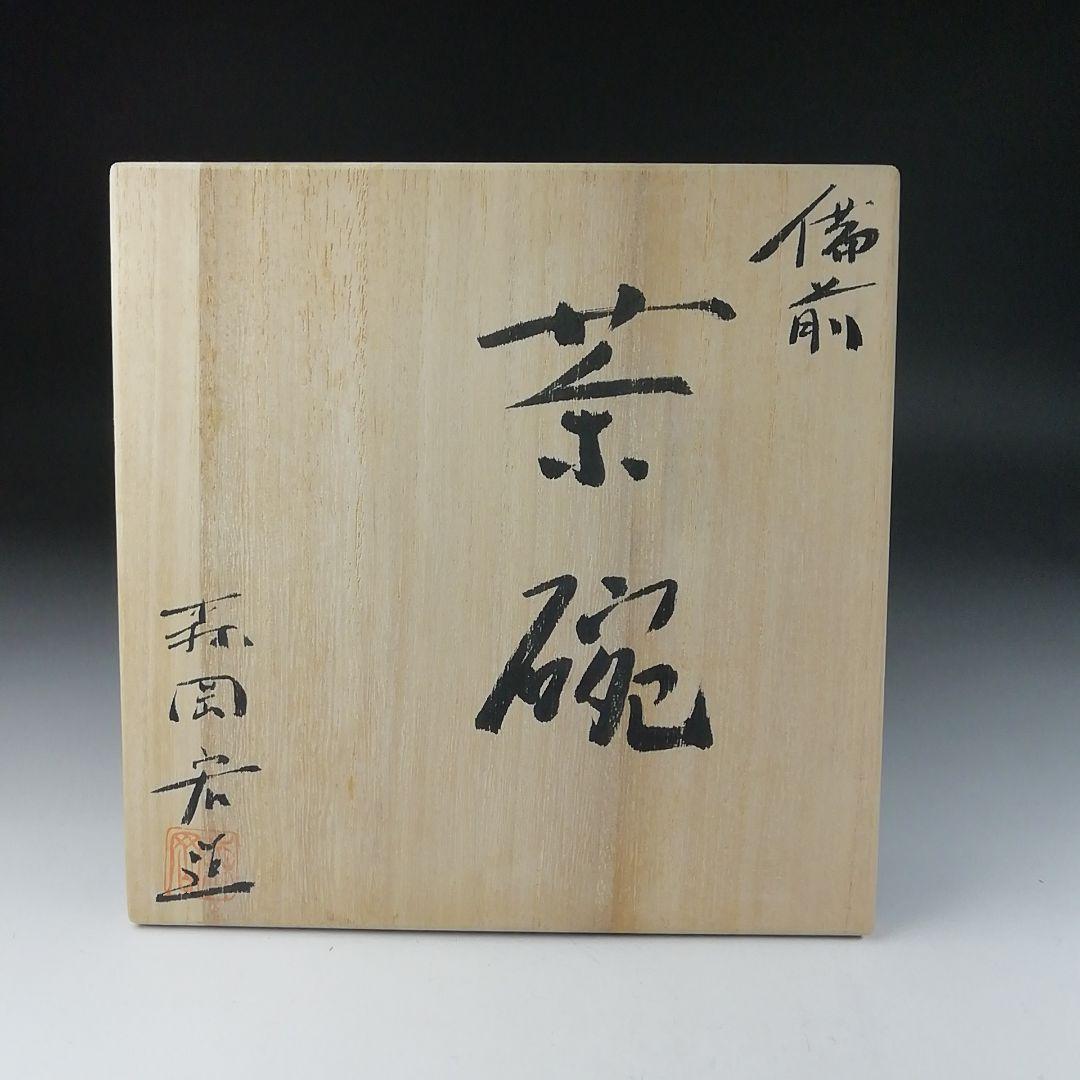 備前
茶碗
森岡宏造